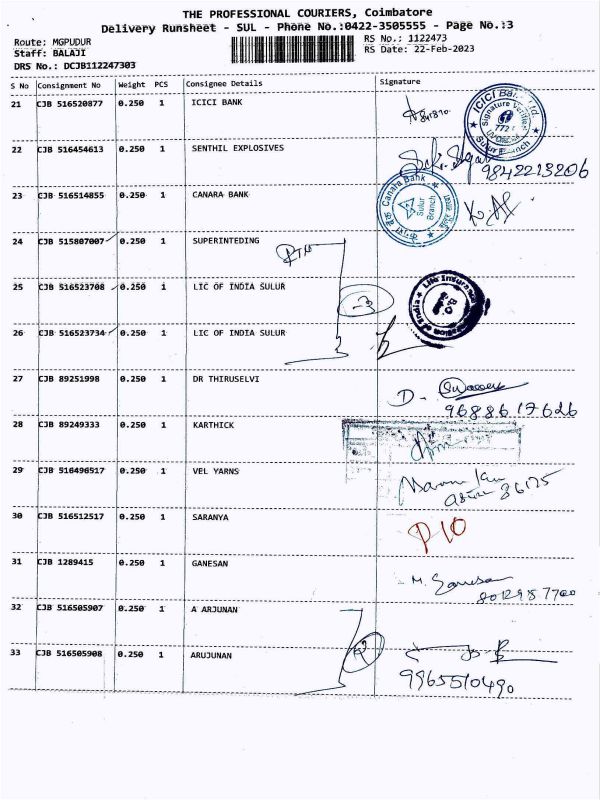 THE PROFESSIONAL COURIERS, Coimbatore
Delivery Runsheet - SUL - Phone No.:0422-3505555 - Page No.:3
Route: MGPUDUR
Staff: BALAJI
DRS No.: DCJB112247303
RS No.: 1122473
RS Date: 22-Feb-2023
S No Consignment No Weight PCS Consignee Details Signature
21 CJB 516520877 0.250 1 ICICI BANK
ICICI Bank Ltd.
Signature Verified
Sulur Branch
22 CJB 516454613 0.250 1 SENTHIL EXPLOSIVES
9842213206
23 CJB 516514855 0.250 1 CANARA BANK
Canara Bank
Sulur Branch
24 CJB 515807007 0.250 1 SUPERINTEDING
25 CJB 516523708 0.250 1 LIC OF INDIA SULUR
3
Life Insurance
of India
26 CJB 516523734 0.250 1 LIC OF INDIA SULUR
27 CJB 89251998 0.250 1 DR THIRUSELVI
D -
9688617626
28 CJB 89249333 0.250 1 KARTHICK
29 CJB 516496517 0.250 1 VEL YARNS
36175
30 CJB 516512517 0.250 1 SARANYA
P10
31 CJB 1289415 0.250 1 GANESAN
M. Ganesan
8012957700
32 CJB 516505907 0.250 1 A ARJUNAN
33 CJB 516505908 0.250 1 ARUJUNAN
9965510490